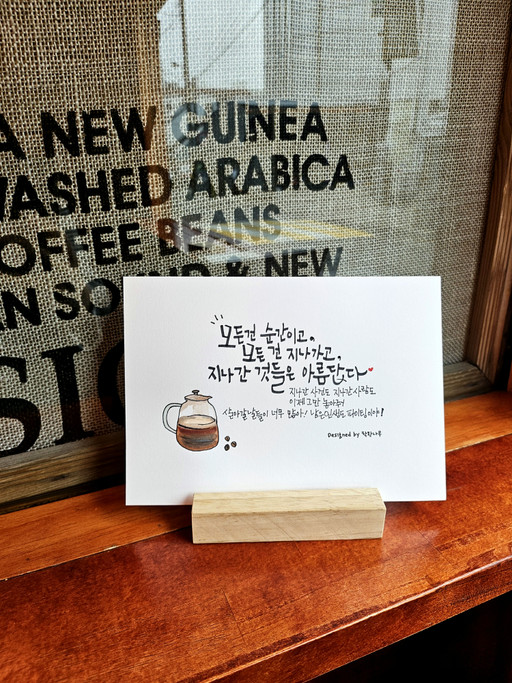 A NEW GUINEA
WASHED ARABICA
COFFEE BEANS
AN SOUND & NEW
SIG
모든건 순간이고,
모든 건 지나가고,
지나간 것들은 아름답다
지나간 사건도 지나간 사람도
이제 그만 놓아줘
살아갈 날들이 너무 많아! 남은인생도 파이팅이야!
Designed by